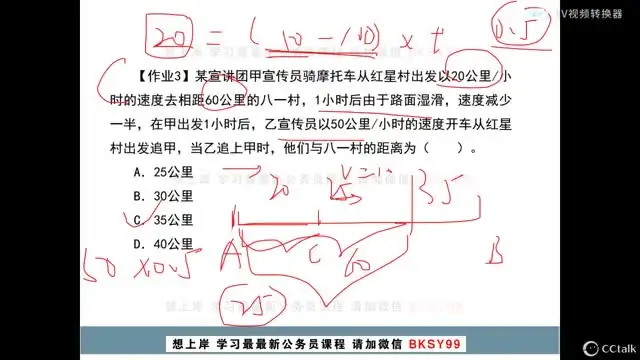 TV视频转换器
20 = ( 10 - 10) × t 0.5
【作业3】某宣讲团甲宣传员骑摩托车从红星村出发以20公里/小
时的速度去相距60公里的八一村,1小时后由于路面湿滑,速度减少
一半,在甲出发1小时后,乙宣传员以50公里/小时的速度开车从红星
村出发追甲,当乙追上甲时,他们与八一村的距离为( )。
A. 25公里
B. 30公里
C. 35公里
D. 40公里
20
35
A C 60 B
50 ×0.5
25
想上岸 学习最最新公务员课程 请加微信 BKSY99
想上岸 学习最最新公务员课程 请加微信 BKSY99
CCtalk